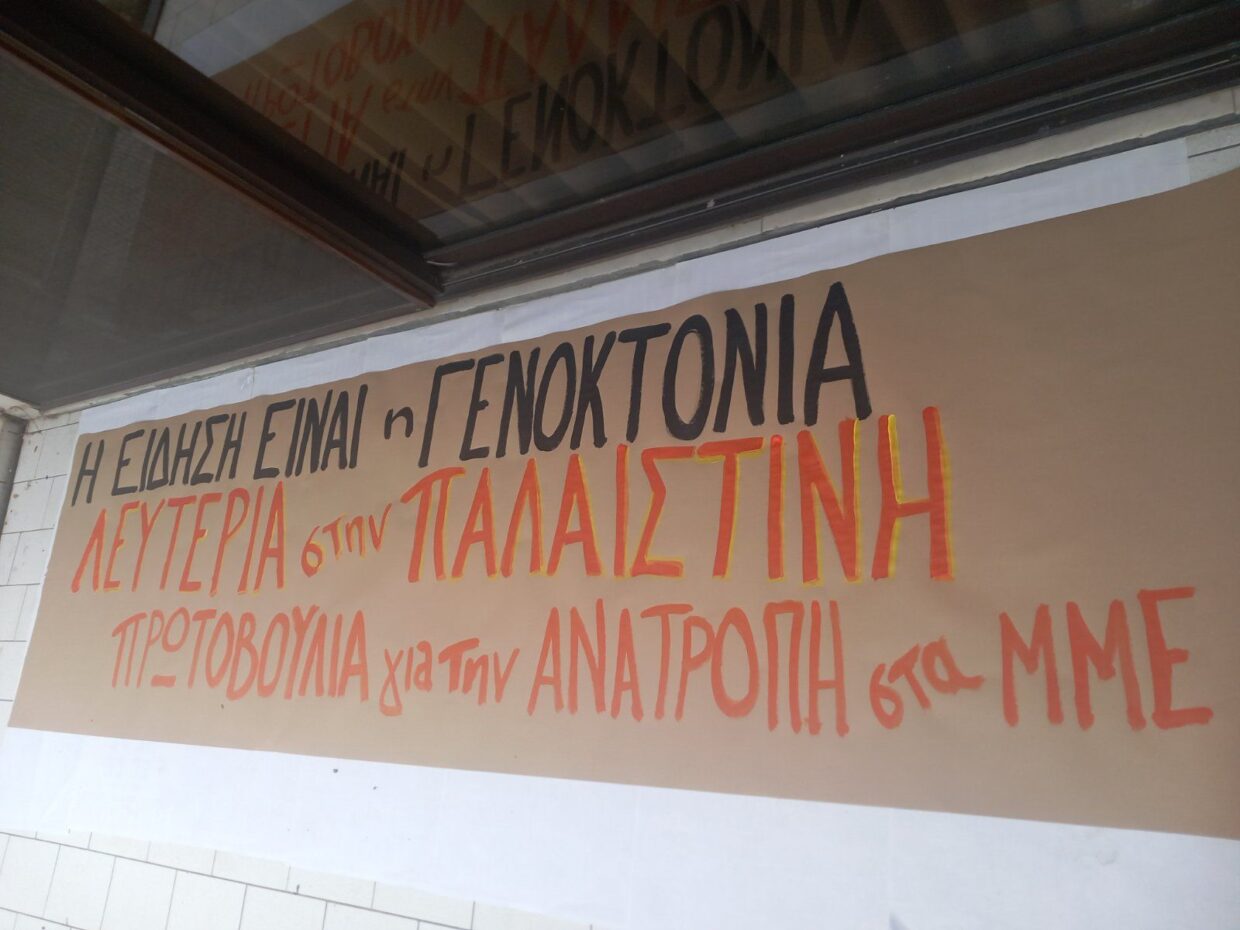 Η ΕΙΔΗΣΗ ΕΙΝΑΙ η ΓΕΝΟΚΤΟΝΙΑ
ΛΕΥΤΕΡΙΑ στην ΠΑΛΑΙΣΤΙΝΗ
ΠΡΩΤΟΒΟΥΛΙΑ για την ΑΝΑΤΡΟΠΗ στα ΜΜΕ